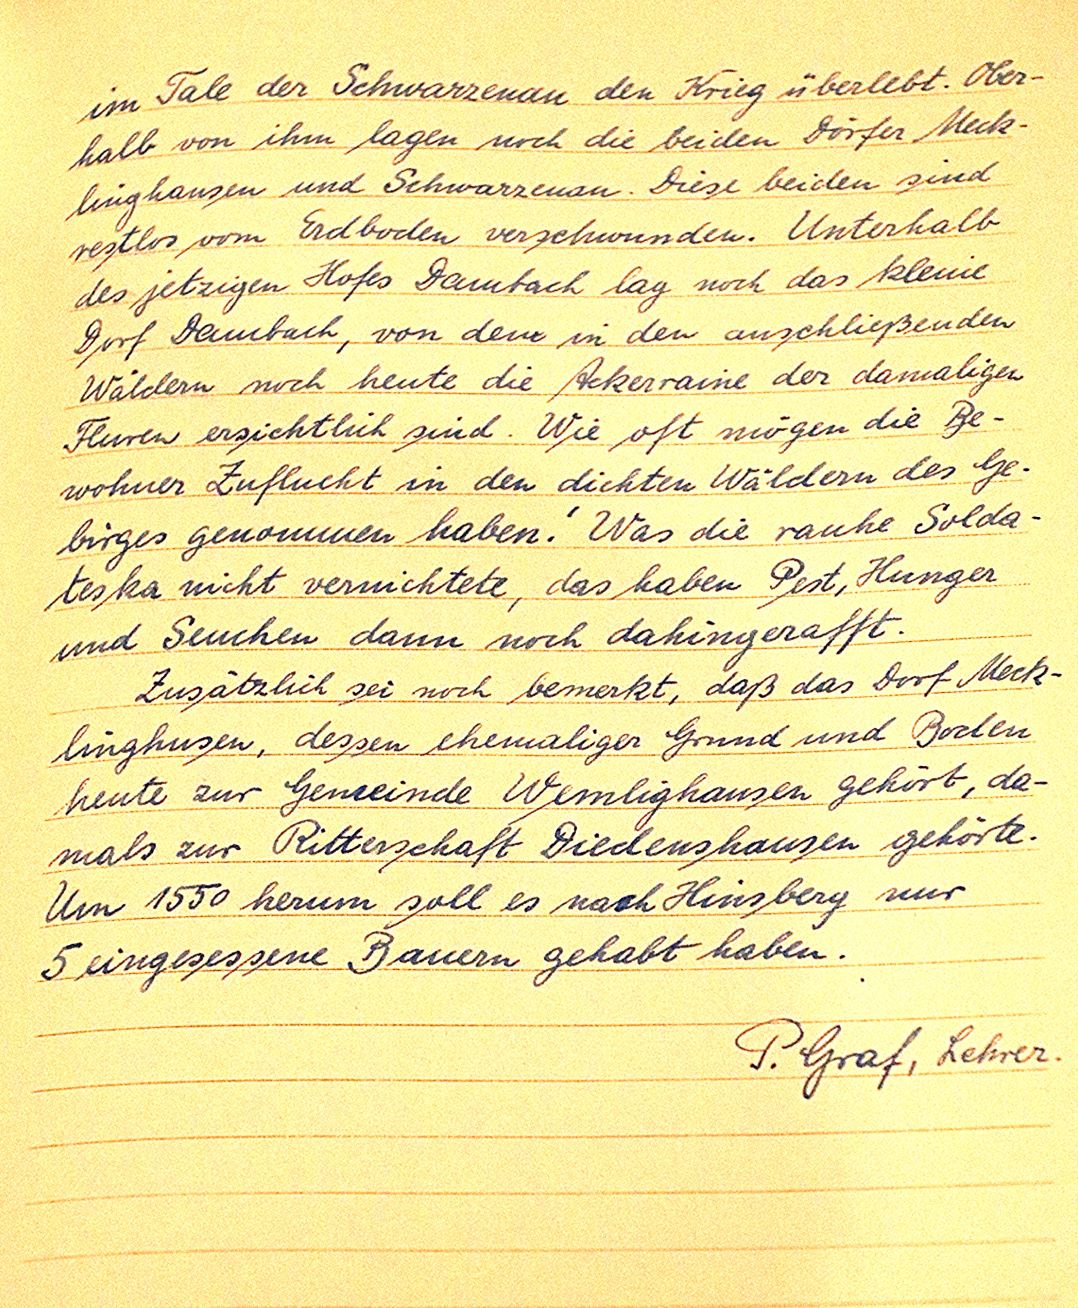 im Tale der Schwarzenau den Krieg überlebt. Ober-
halb von ihm lagen noch die beiden Dörfer Meck-
linghausen und Schwarzenau. Diese beiden sind
restlos vom Erdboden verschwunden. Unterhalb
des jetzigen Hofes Dambach lag noch das kleine
Dorf Dambach, von dem in den anschließenden
Wäldern noch heute die Ackerraine der damaligen
Fluren ersichtlich sind. Wie oft mögen die Be-
wohner Zuflucht in den dichten Wäldern des Ge-
birges genommen haben! Was die rauhe Solda-
teska nicht vernichtete, das haben Pest, Hunger
und Seuchen dann noch dahingerafft.
Zusätzlich sei noch bemerkt, daß das Dorf Meck-
linghusen, dessen ehemaliger Grund und Boden
heute zur Gemeinde Wemlighausen gehört, da-
mals zur Ritterschaft Diedenshausen gehörte.
Um 1550 herum soll es nach Hinsberg nur
5 eingesessene Bauern gehabt haben.
P. Graf, Lehrer.